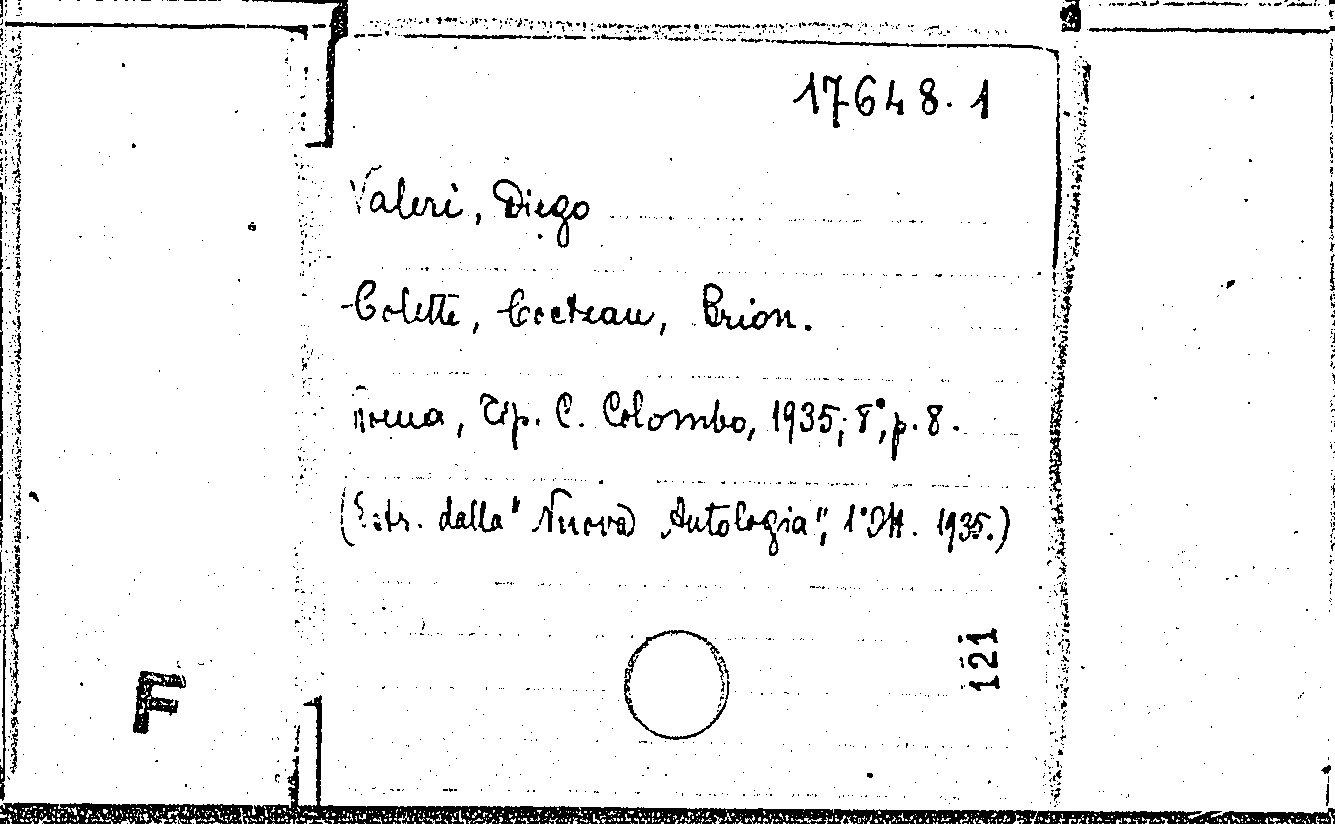 17648.1
Valeri, Diego
Colette, Cocteau, Brion.
Roma, Tip. C. Colombo, 1935; 8°, p. 8.
(Estr. dalla "Nuova Antologia", 1° Ott. 1935.)
121
F